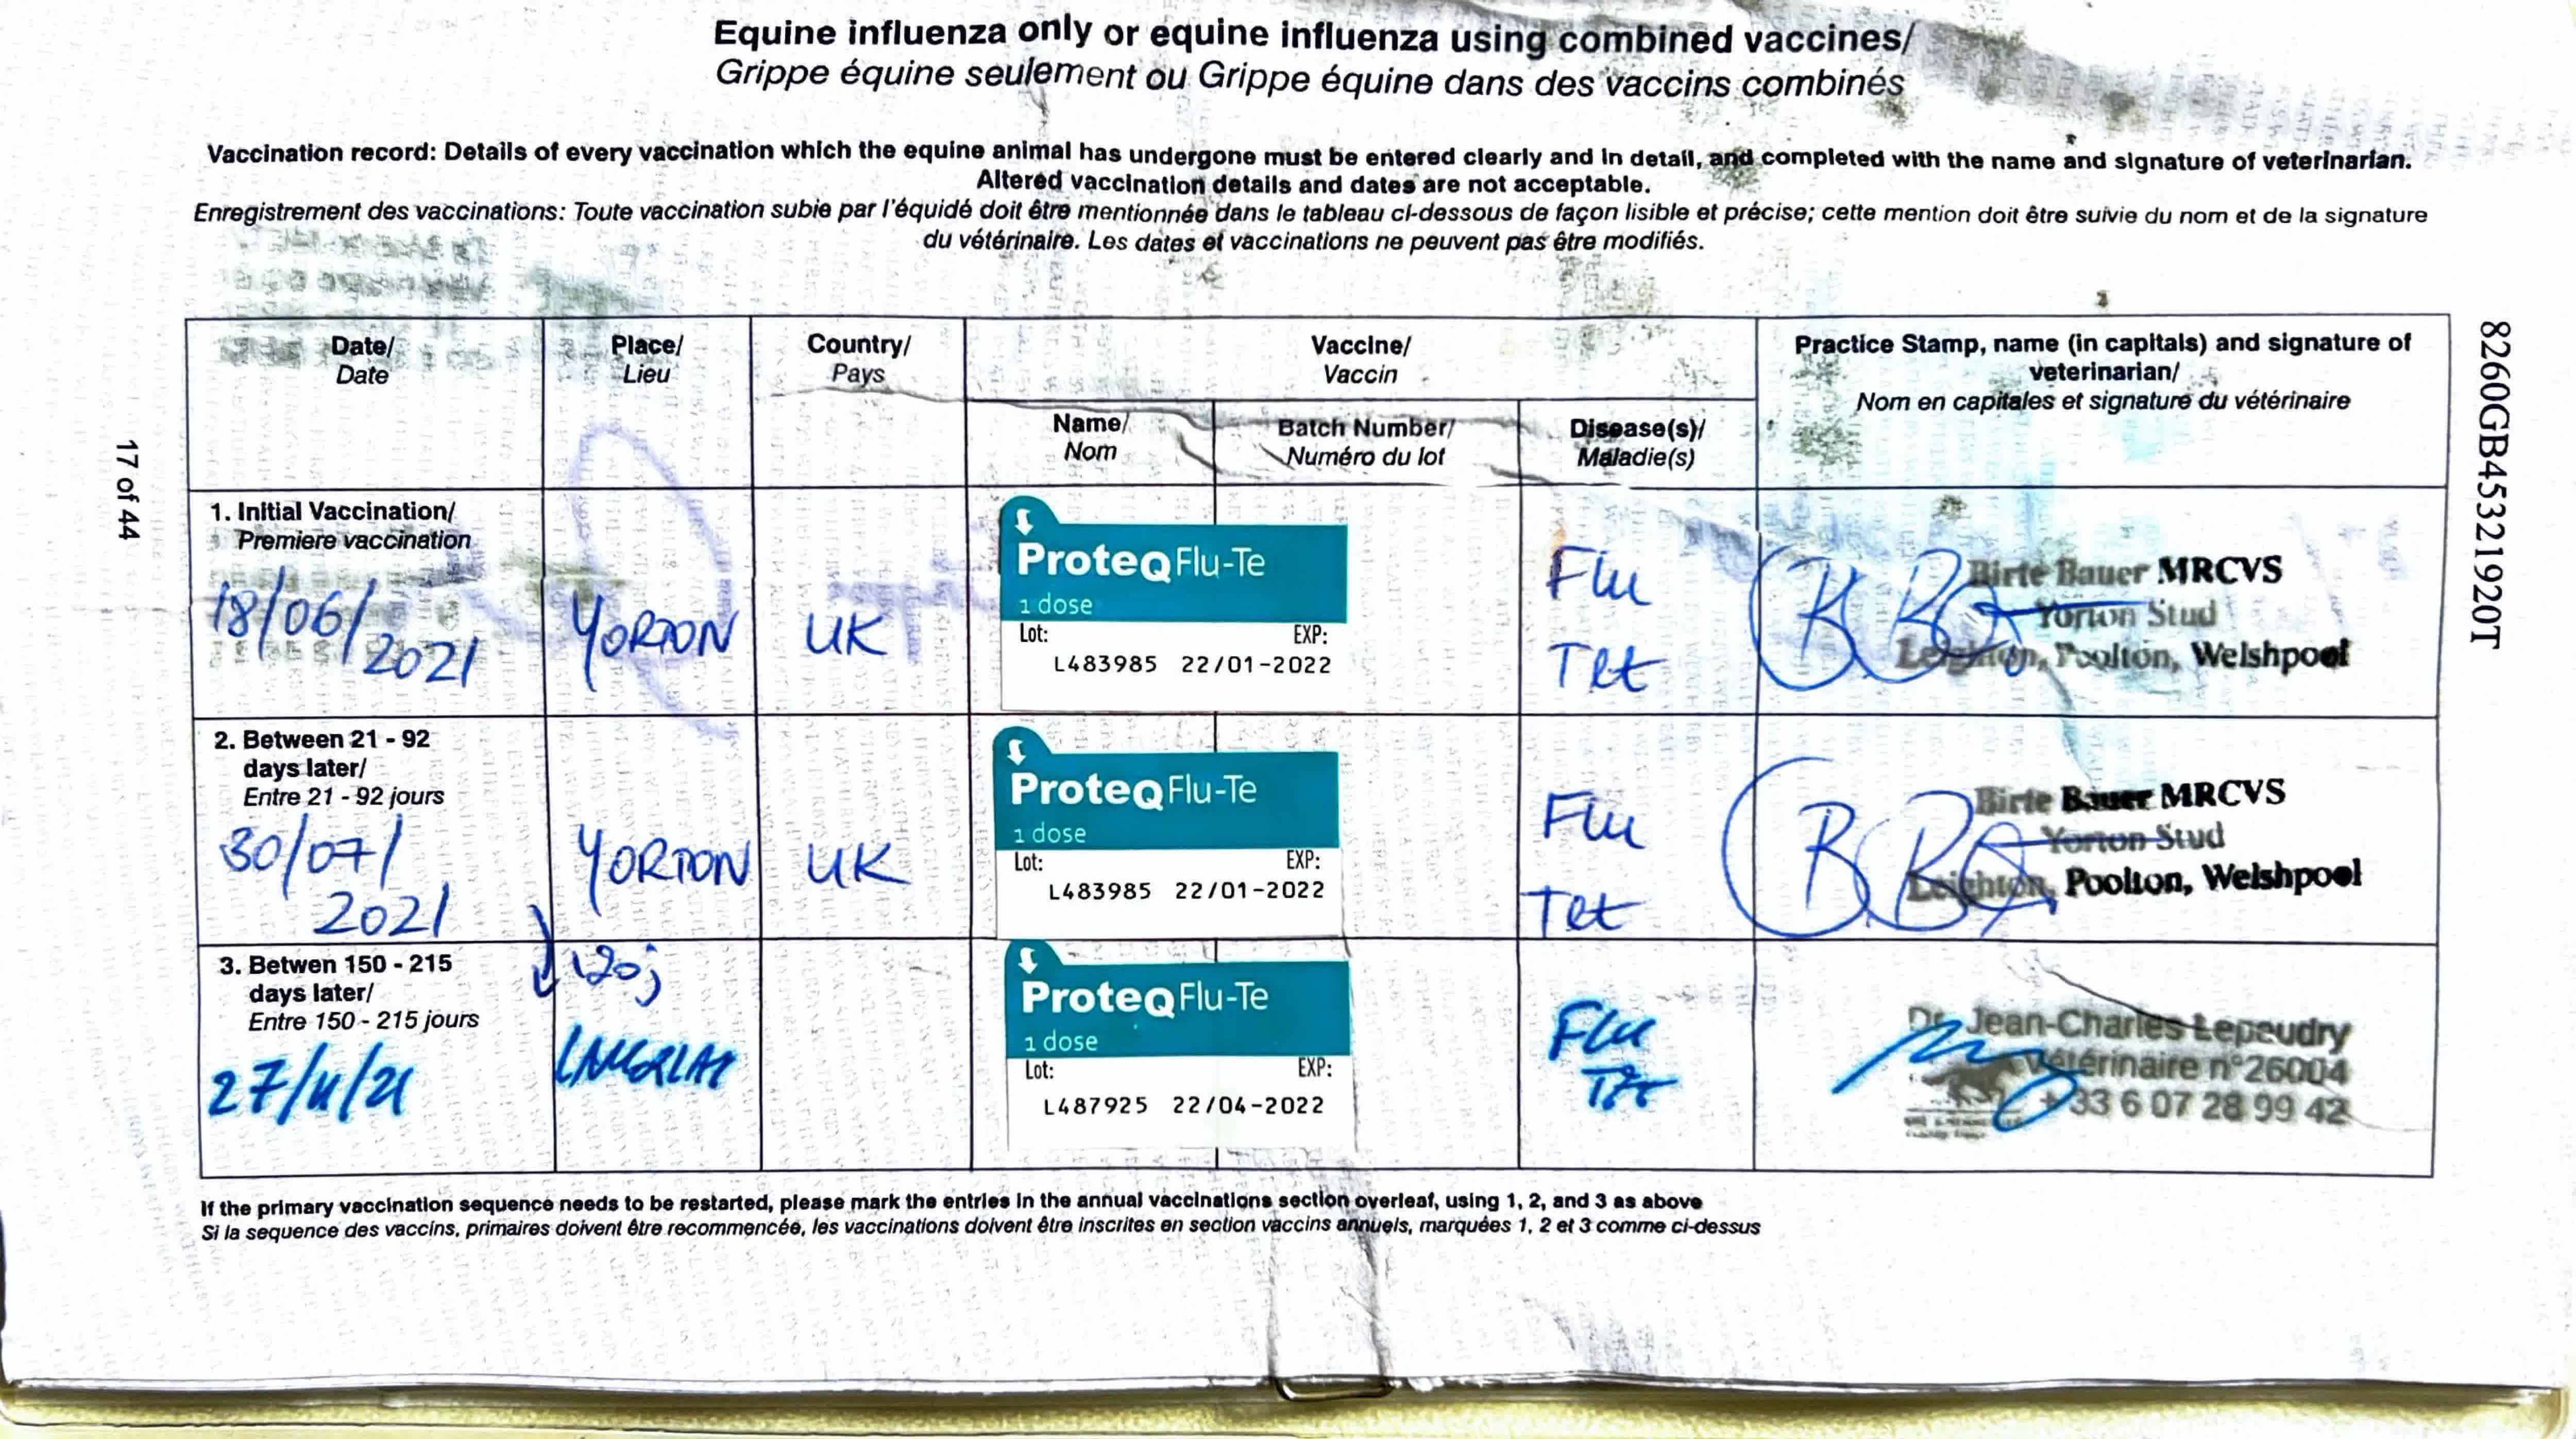 Equine influenza only or equine influenza using combined vaccines/
Grippe équine seulement ou Grippe équine dans des vaccins combinés
Vaccination record: Details of every vaccination which the equine animal has undergone must be entered clearly and in detail, and completed with the name and signature of veterinarian.
Altered vaccination details and dates are not acceptable.
Enregistrement des vaccinations: Toute vaccination subie par l'équidé doit être mentionnée dans le tableau ci-dessous de façon lisible et précise; cette mention doit être suivie du nom et de la signature
du vétérinaire. Les dates et vaccinations ne peuvent pas être modifiés.
Date/
Date
Place/
Lieu
Country/
Pays
Vaccine/
Vaccin
Practice Stamp, name (in capitals) and signature of
veterinarian/
Nom en capitales et signature du vétérinaire
Name/
Nom
Batch Number/
Numéro du lot
Disease(s)/
Maladie(s)
1. Initial Vaccination/
Premiere vaccination
18/06/
2021
YORTON
UK
ProteqFlu-Te
1 dose
Lot: EXP:
L483985 22/01-2022
Flu
Tet
Birte Bauer MRCVS
Yorton Stud
Leighton, Poolton, Welshpool
2. Between 21 - 92
days later/
Entre 21 - 92 jours
30/07/
2021
YORTON
UK
ProteqFlu-Te
1 dose
Lot: EXP:
L483985 22/01-2022
Flu
Tet
Birte Bauer MRCVS
Yorton Stud
Leighton, Poolton, Welshpool
3. Betwen 150 - 215
days later/
Entre 150 - 215 jours
27/11/21
120j
ProteqFlu-Te
1 dose
Lot: EXP:
L487925 22/04-2022
Flu
Tet
Dr. Jean-Charles Lepeudry
Vétérinaire n°26004
+33 6 07 28 99 42
If the primary vaccination sequence needs to be restarted, please mark the entries in the annual vaccinations section overleaf, using 1, 2, and 3 as above
Si la sequence des vaccins, primaires doivent être recommencée, les vaccinations doivent être inscrites en section vaccins annuels, marquées 1, 2 et 3 comme ci-dessus
17 of 44
8260GB45321920T